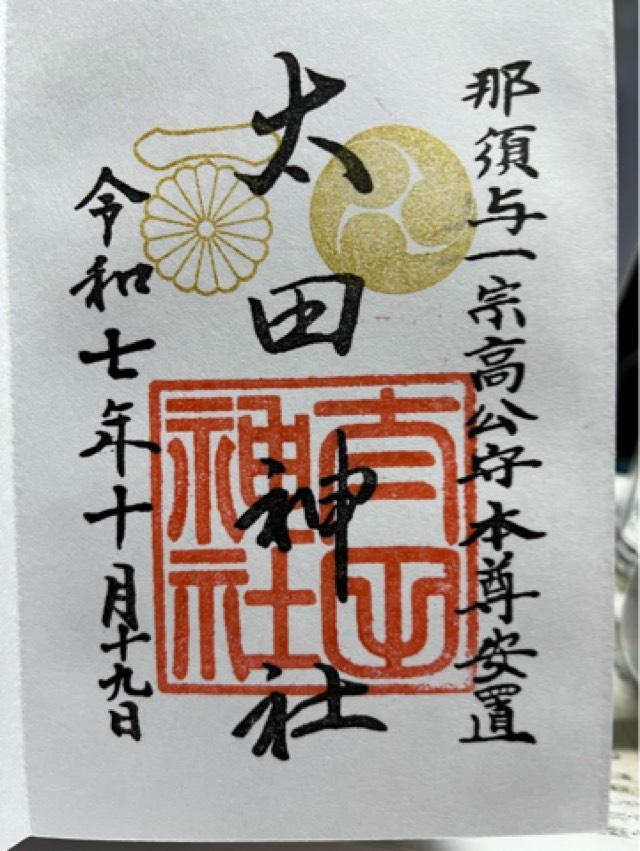 那須与一宗高公守本尊安置
太田神社
神社
令和七年十月十九日